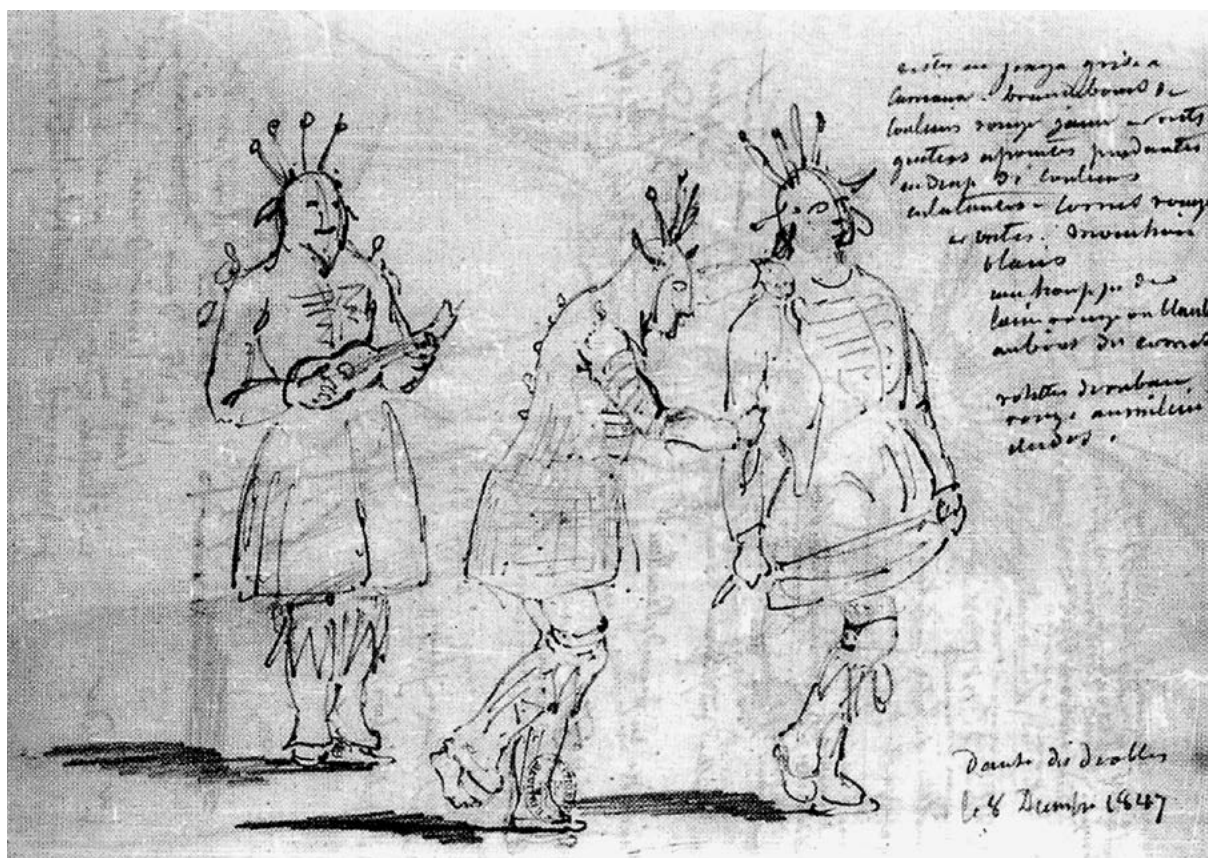 en jerga grise a
brandebours de
Couleurs rouge jaune et verts
guetres a pointes pendantes
en drap de couleurs
eclatantes - cornes rouge
et vertes. mouchoir
blanc
une houppe de
laine rouge ou blanc
au bout des
rosettes de ruban
rouge au milieu
du dos.
Danse des diables
le 8 Decembre 1847